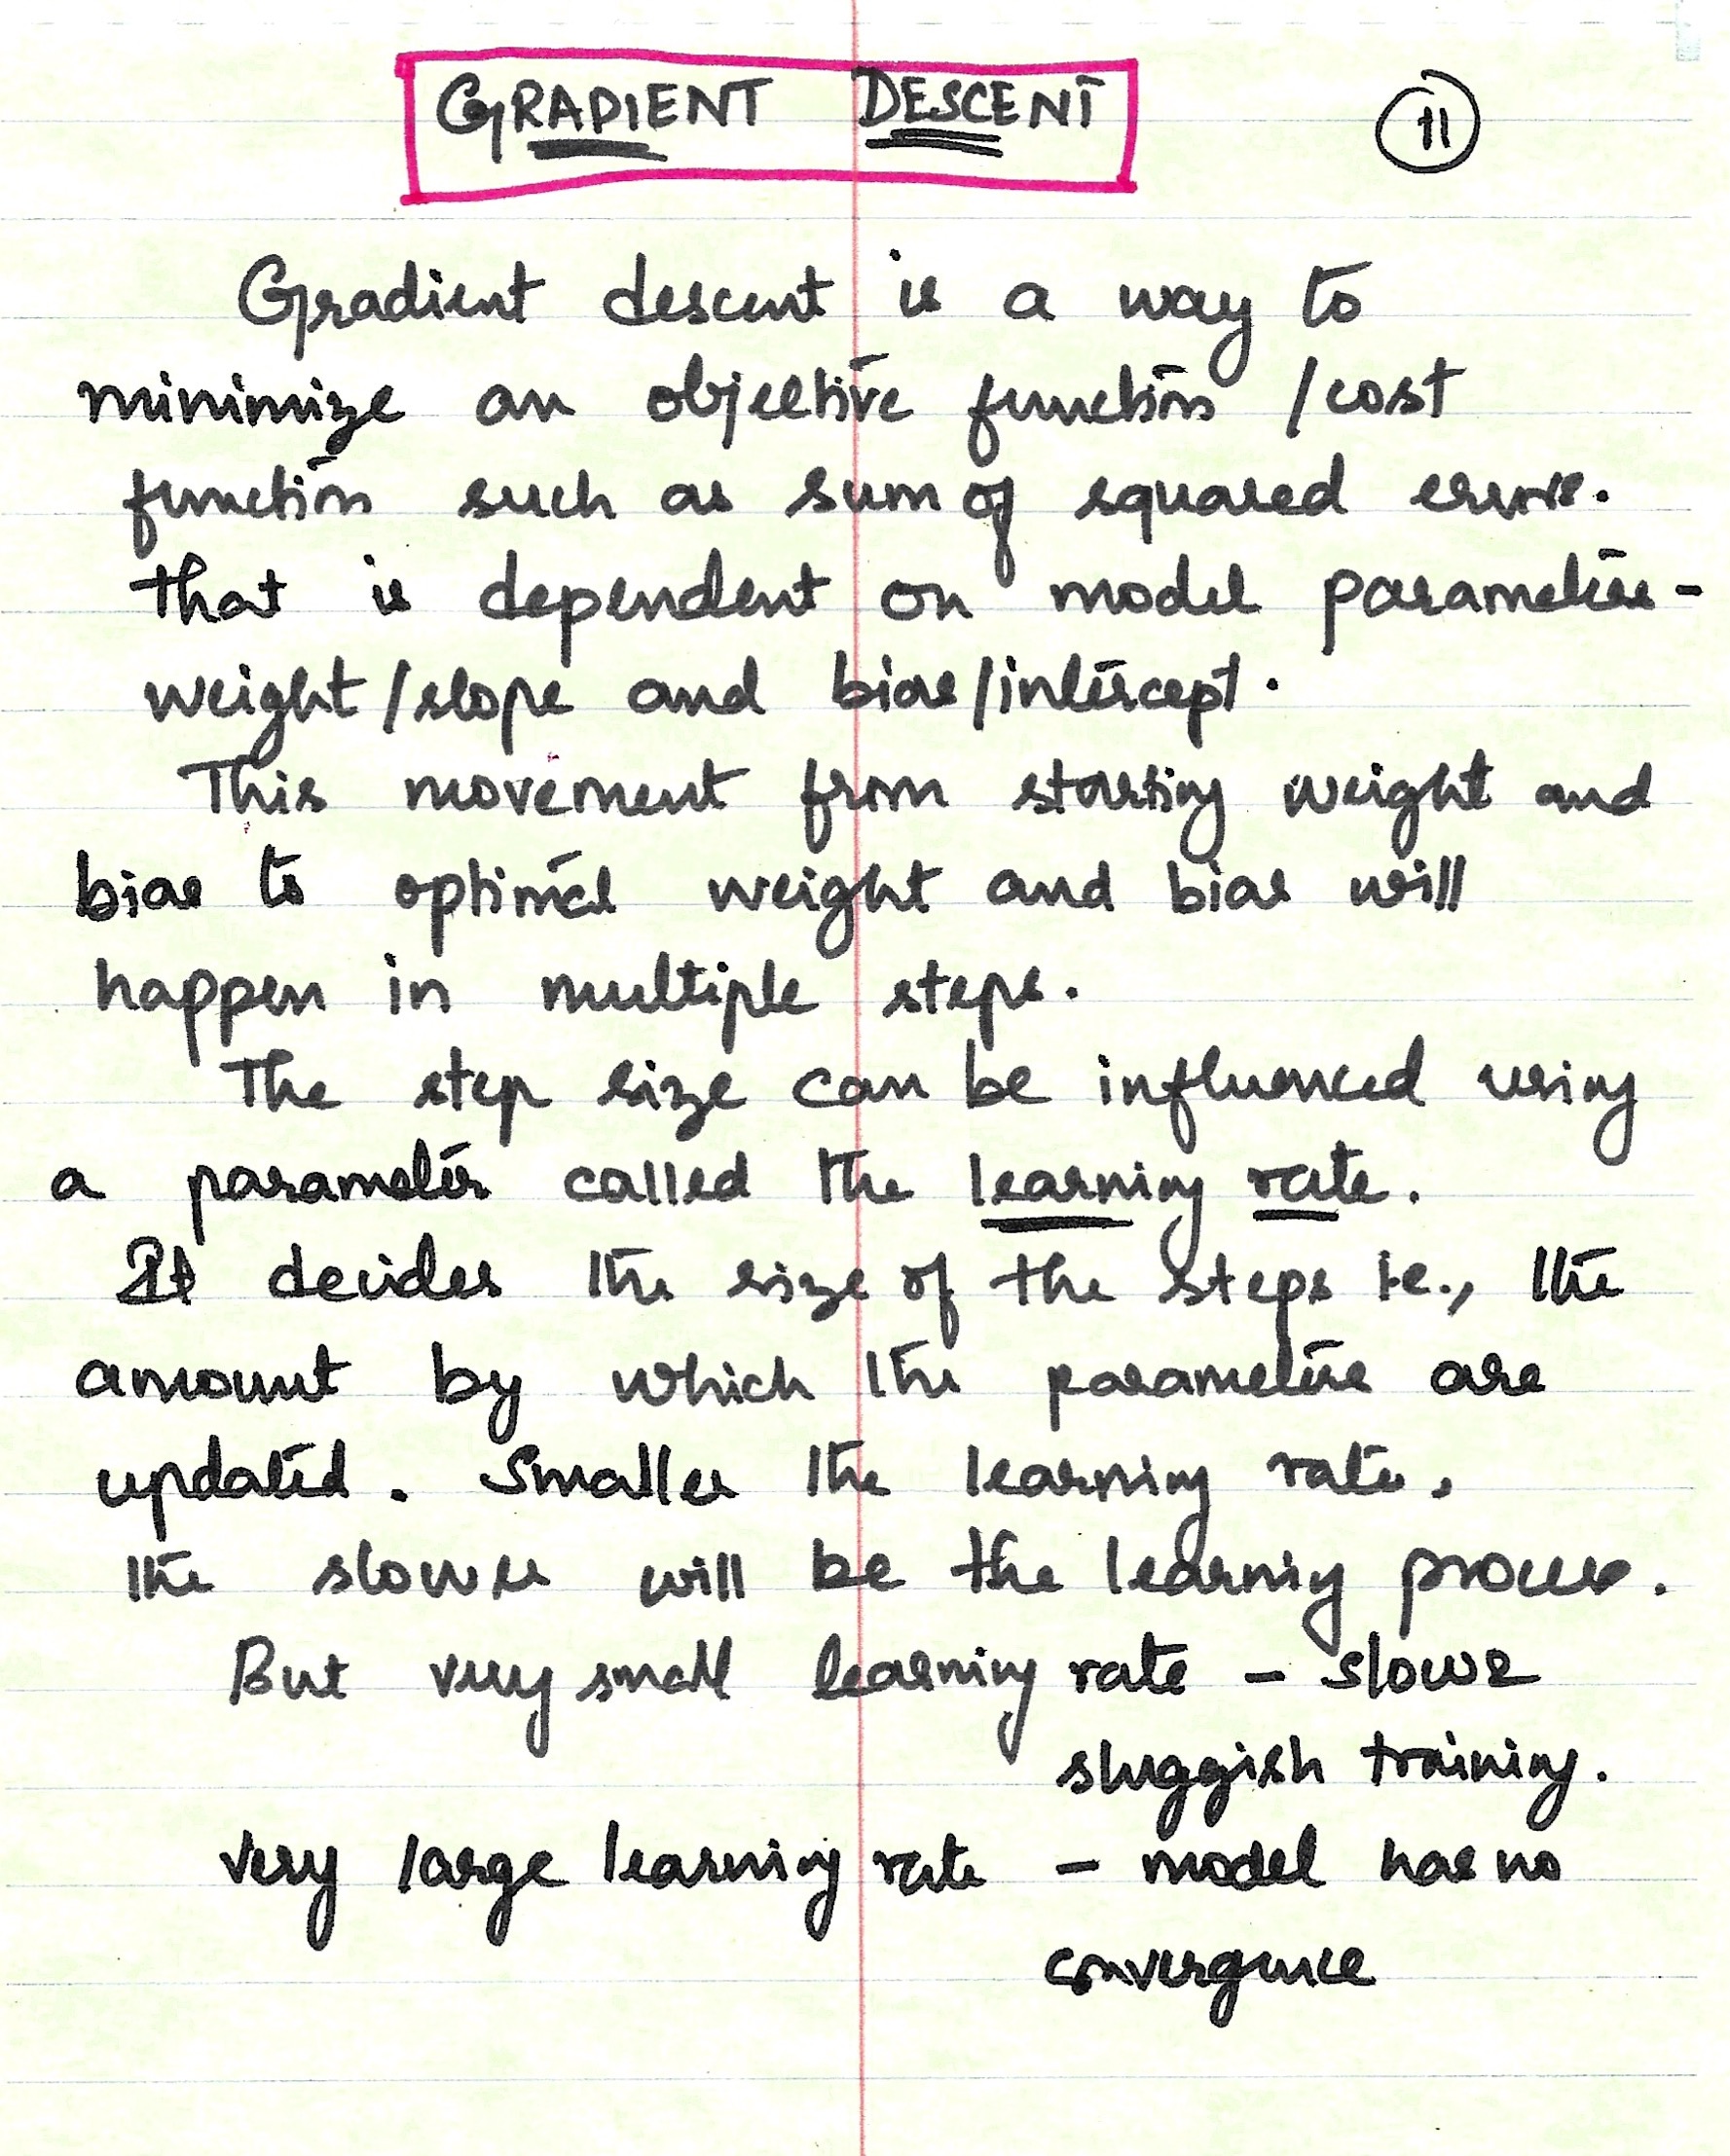 GRADIENT DESCENT
11
Gradient descent is a way to
minimize an objective function / cost
function such as sum of squared errors.
that is dependent on model parameters -
weight / slope and bias / intercept.
This movement from starting weight and
bias to optimal weight and bias will
happen in multiple steps.
The step size can be influenced using
a parameter called the learning rate.
It decides the size of the steps ie., the
amount by which the parameters are
updated. Smaller the learning rate,
the slower will be the learning process.
But very small learning rate - slower
sluggish training.
very large learning rate - model has no
convergence